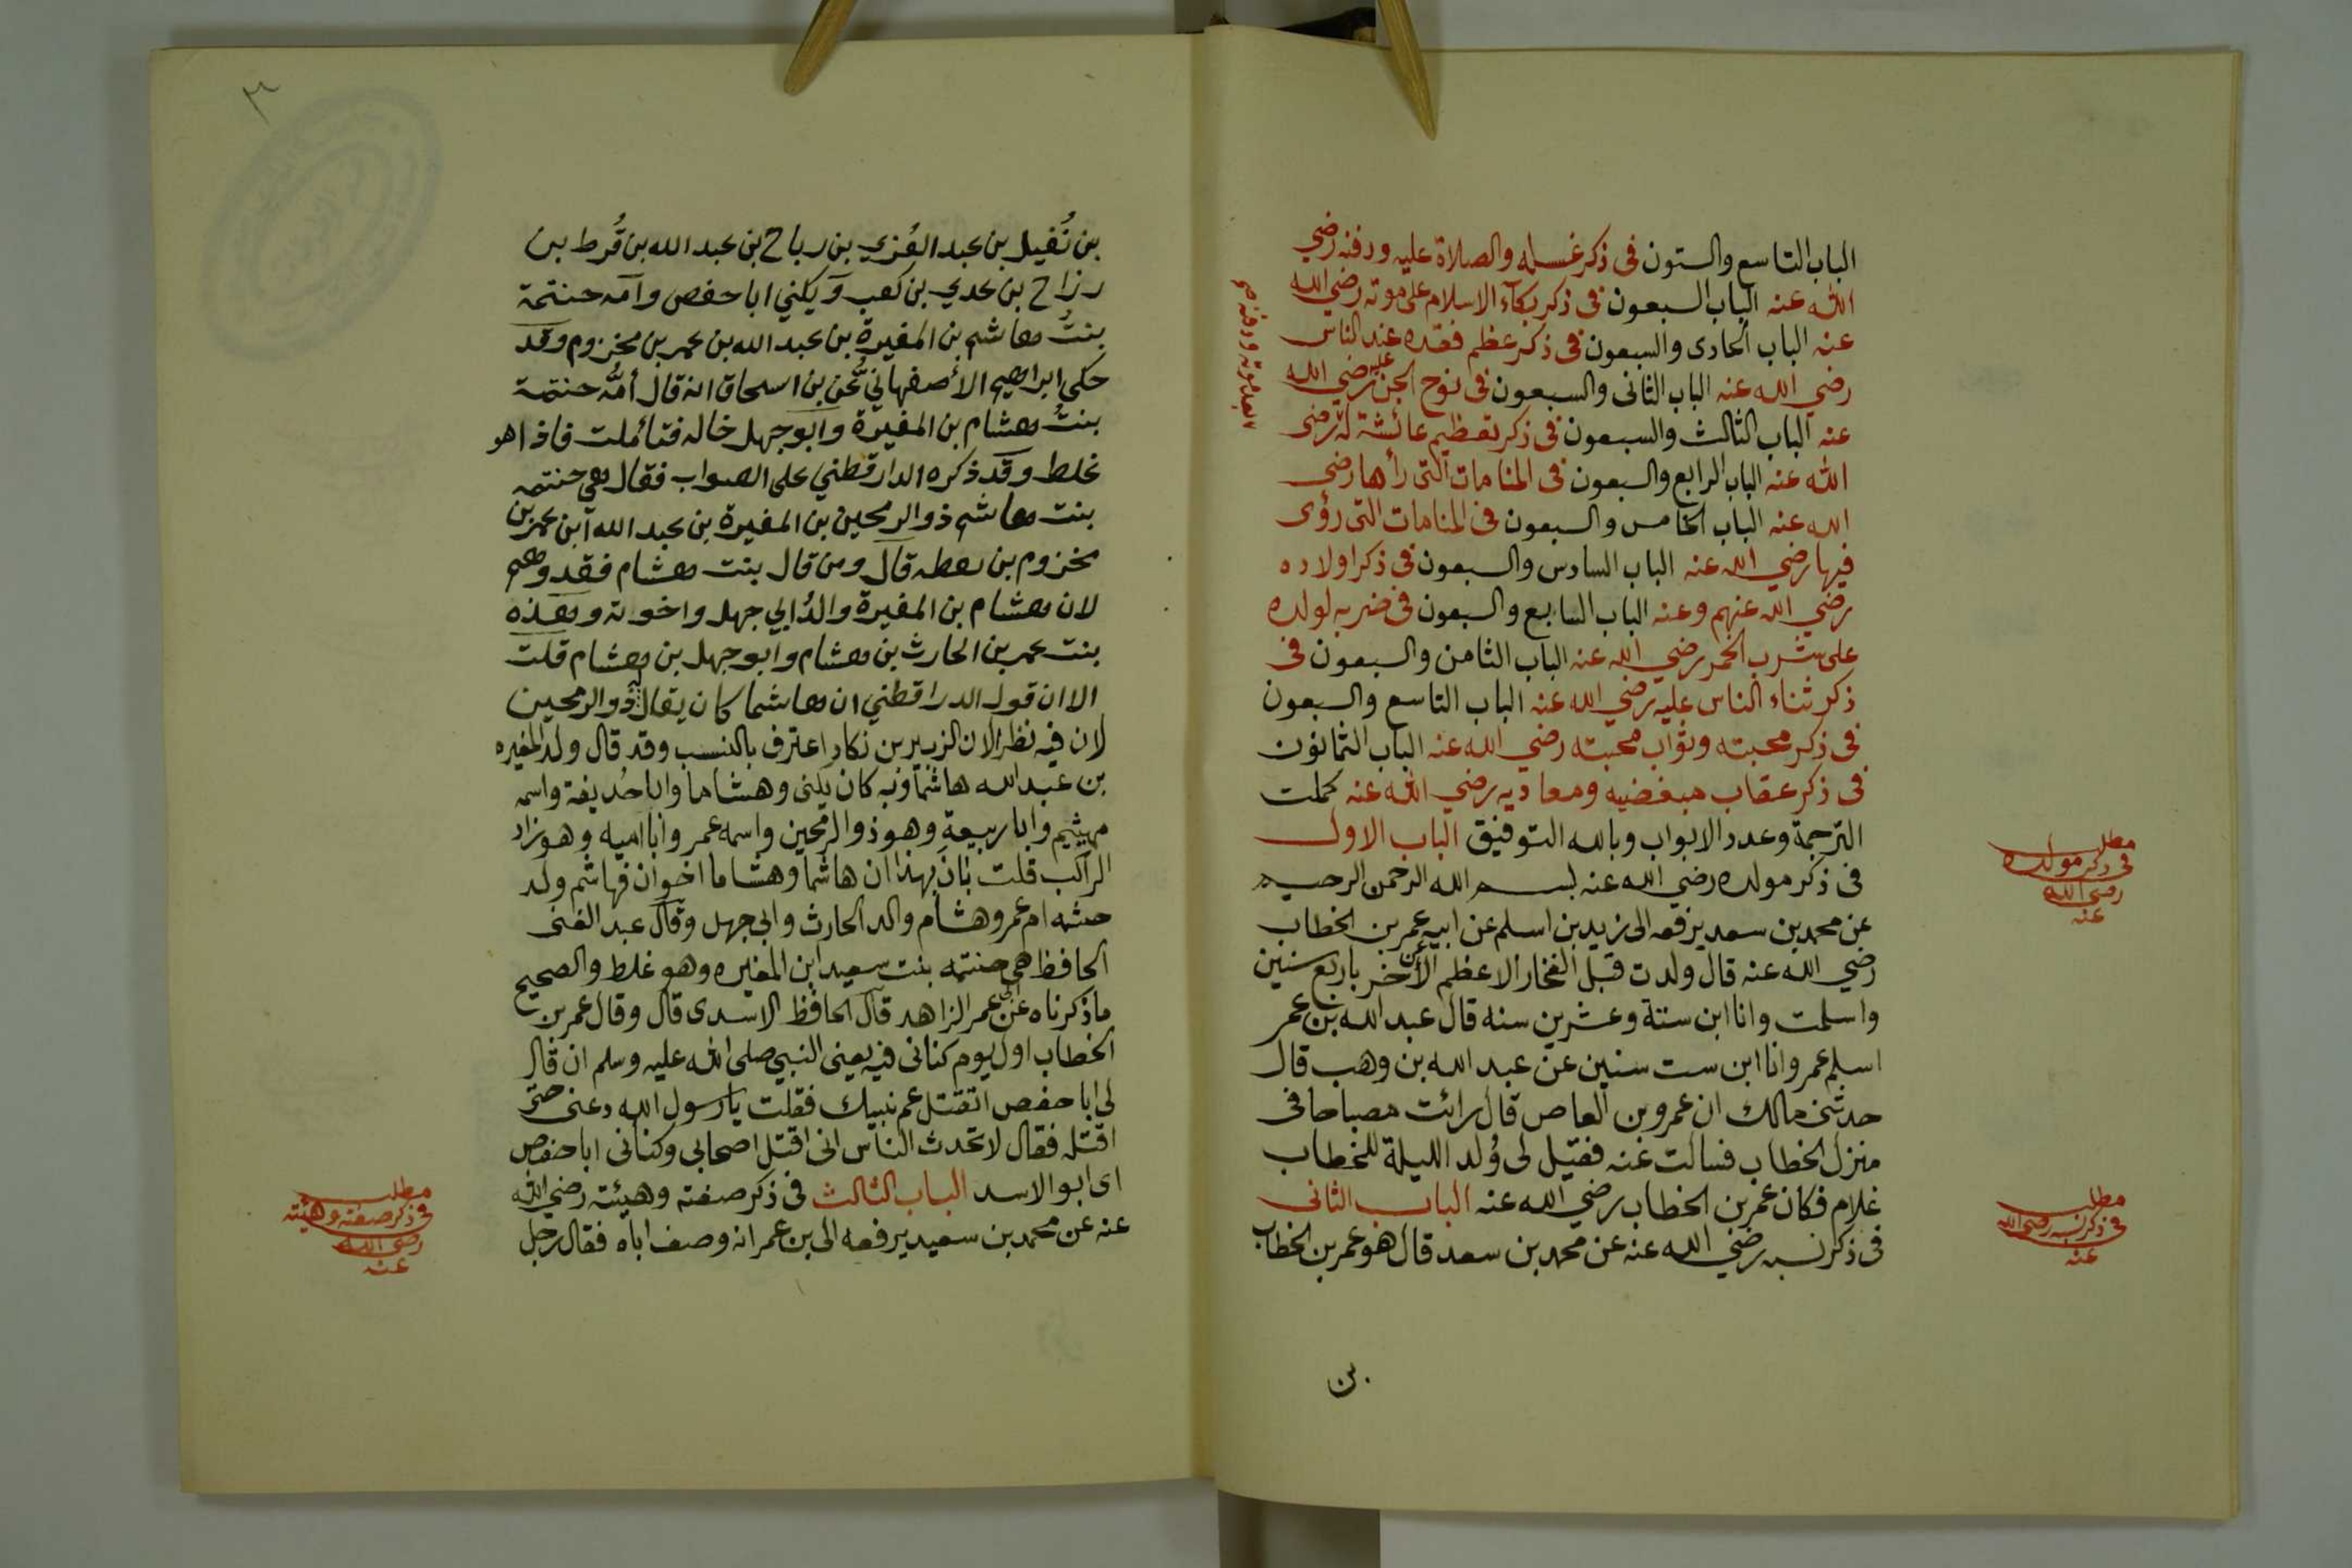 الباب التاسع والستون فى ذكر غسله والصلاة عليه ودفنه رضي
الله عنه الباب السبعون فى ذكر بكاء الاسلام على موته رضي الله
عنه الباب الحادى والسبعون فى ذكر عظم فقده عند الناس
رضي الله عنه الباب الثانى والسبعون فى نوح الجن عليه رضي الله
عنه الباب الثالث والسبعون فى ذكر تعظيم عائشة له رضى
الله عنه الباب الرابع والسبعون فى المنامات التى رأها رضى
الله عنه الباب الخامس والسبعون فى المنامات التى رؤى
فيها رضي الله عنه الباب السادس والسبعون فى ذكر اولاده
رضي الله عنهم وعنه الباب السابع والسبعون فى ضربه لولده
على شرب الخمر رضي الله عنه الباب الثامن والسبعون فى
ذكر ثناء الناس عليه رضي الله عنه الباب التاسع والسبعون
فى ذكر محبته وثواب محبته رضي الله عنه الباب الثمانون
فى ذكر عقاب مبغضيه ومعاديه رضي الله عنه كملت
الترجمة وعدد الابواب وبالله التوفيق الباب الاول
فى ذكر مولده رضي الله عنه بسم الله الرحمن الرحيم
عن محمد بن سعد يرفعه الى زيد بن اسلم عن ابيه عن عمر بن الخطاب
رضي الله عنه قال ولدت قبل الفخار الاعظم الأخر باربع سنين
واسلمت وانا ابن ستة وعشرين سنه قال عبد الله بن عمر
اسلم عمر وانا ابن ست سنين عن عبد الله بن وهب قال
حدثنى مالك ان عمرو بن العاص قال رائت مصباحا فى
منزل الخطاب فسالت عنه فقيل لى وُلد الليلة للخطاب
غلام فكان عمر بن الخطاب رضي الله عنه الباب الثانى
فى ذكر نسبه رضي الله عنه عن محمد بن سعد قال هو عمر بن الخطاب
بعد موته ودفنه صح
مطلب
فى ذكر مولده
رضى الله
عنه
مطلب
فى ذكر نسبه رضى الله
عنه
بن
٣
بن نُفيل بن عبد العُزي بن رباح بن عبد الله بن قُرط بن
رزاح بن عدي بن كعب ويكني ابا حفص وامه حنتمة
بنتُ هاشم بن المغيرة بن عبد الله بن عمر بن مخزوم وقد
حكى ابراهيم الأصفهاني عن بن اسحاق انه قال أمُّه حنتمة
بنتُ هشام بن المغيرة وابو جهل خاله فتأملت فاذا هو
غلط وقد ذكره الدارقطني على الصواب فقال هي حنتمه
بنت هاشم ذو الرمحين بن المغيرة بن عبد الله ابن عمر بن
مخزوم بن يعطه قال ومن قال بنت هشام فقد وهم
لان هشام بن المغيرة والدُ ابي جهل واخوته وهذه
بنت عمر بن الحارث بن هشام وابو جهل بن هشام قلت
الا ان قول الدراقطني ان هاشما كان يقال له ذو الرمحين
لان فيه نظرا لان الزبير بن نكار اعترف بالنسب وقد قال ولد المغيره
بن عبد الله هاشما وبه كان يكنى وهشاما وابا حُذيفة واسمه
مهشِّم وابا ربيعة وهو ذو الرمحين واسمه عمر وابا اميه وهو زاد
الراكب قلت بَانَ بهذا ان هاشما وهشاما اخوان فهاشم ولد
حنثمه ام عمر وهشام والد الحارث وابي جهل وقال عبد الغنى
الحافظ هي حنتمه بنت سعيد ابن المغيره وهو غلط والصحيح
ما ذكرناه عن ابى عمر الزاهد قال الحافظ الاسدى قال وقال عمر بن
الخطاب اول يوم كنانى فيه يعنى النبي صلى الله عليه وسلم ان قال
لى ابا حفص اتقتل عم نبيك فقلت يا رسول الله دعنى حتى
اقتله فقال لا تحدث الناس انى اقتل اصحابى وكنانى ابا حفص
اى ابو الاسد الباب الثالث فى ذكر صفته وهيئته رضي الله
عنه عن محمد بن سعيد يرفعه الى بن عمر انه وصف اباه فقال رجل
مطلب
فى ذكر صفته وهيئته
رضى الله
عنه